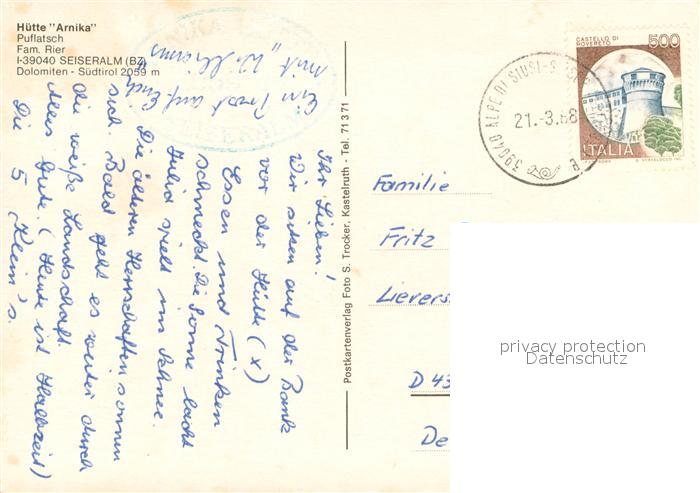 Hütte "Arnika"
Puflatsch
Fam. Rier
I-39040 SEISERALM (BZ)
Dolomiten - Südtirol 2059 m
Ein Prost auf Euch
mit "Williams"
Ihr Lieben!
Wir sitzen auf der Bank
vor der Hütte (x)
Essen und Trinken
schmeckt. Die Sonne lacht
Julia spielt im Schnee.
Die älteren Herrschaften sonnen
sich. Bald geht es weiter durch
die weiße Landschaft.
Alles Gute. (Heute ist Halbzeit)
Die 5 Klein's.
Postkartenverlag Foto S. Trocker, Kastelruth - Tel. 71371
CASTELLO DI
ROVERETO
500
ITALIA
39040 ALPE DI SIUSI-S
21.-3.88
Familie
Fritz
Lievers
D 43
De
privacy protection
Datenschutz